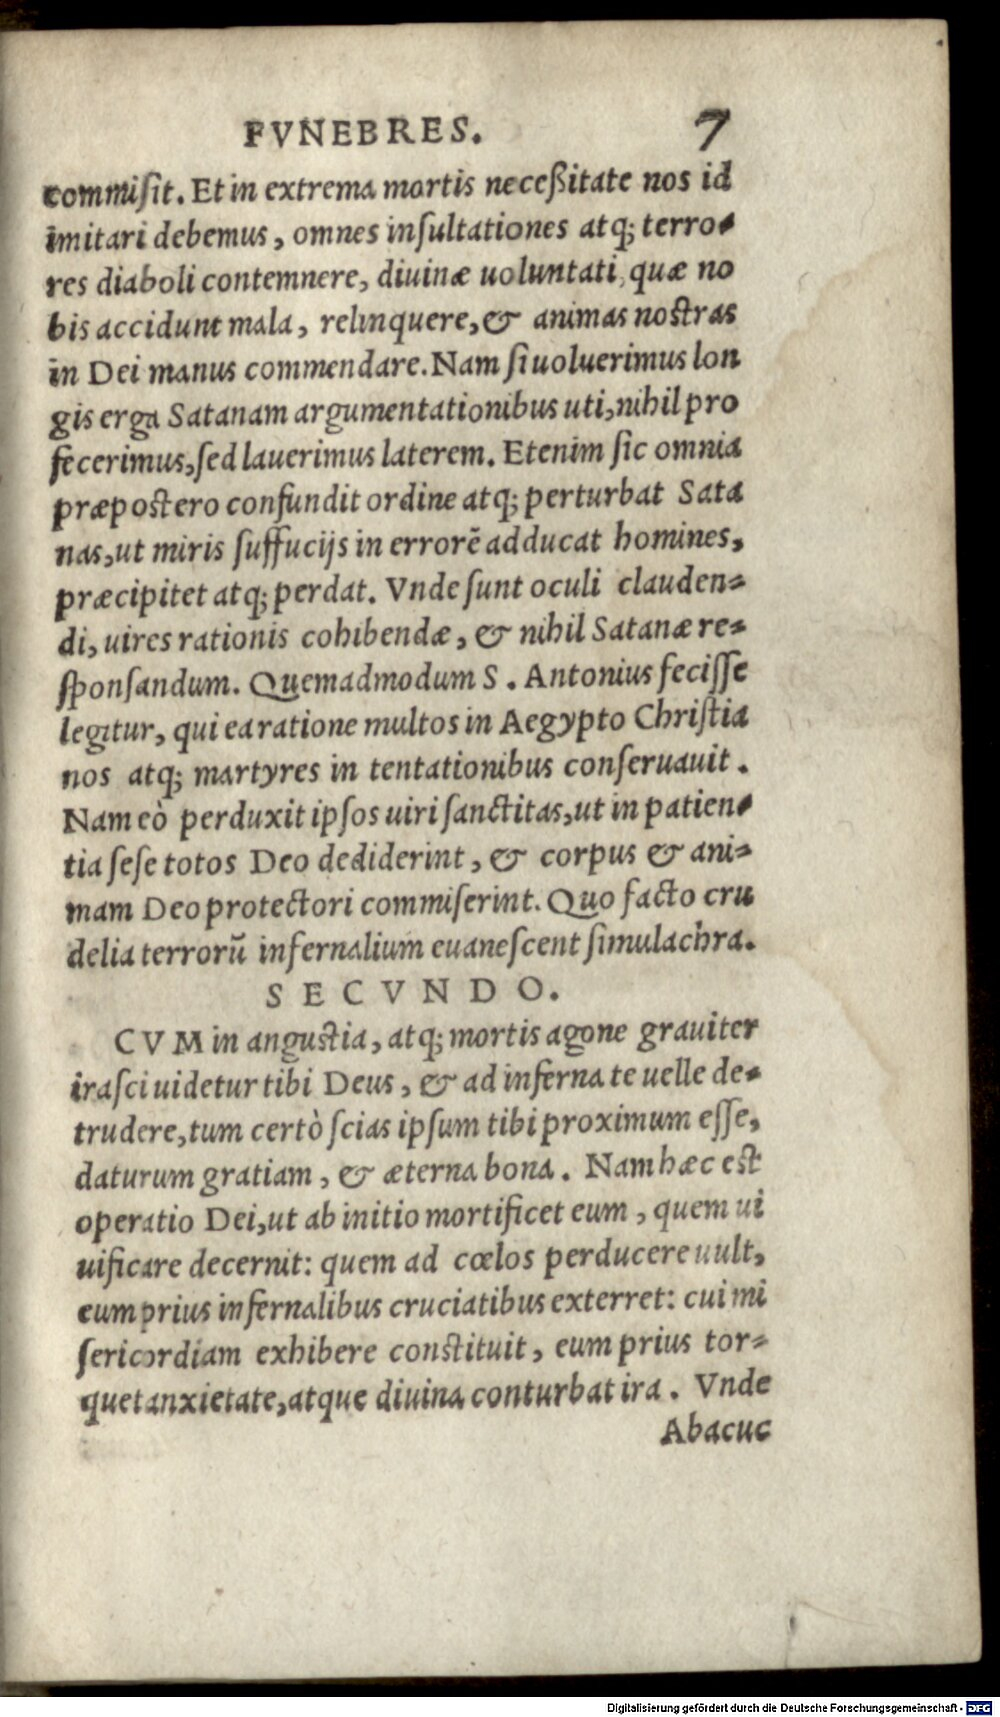 FVNEBRES. 7
commiſit. Et in extrema mortis neceßitate nos id
imitari debemus, omnes inſultationes atq; terro-
res diaboli contemnere, diuinæ uoluntati, quæ no
bis accidunt mala, relinquere, & animas noſtras
in Dei manus commendare. Nam ſi uoluerimus lon
gis erga Satanam argumentationibus uti, nihil pro
fecerimus, ſed lauerimus laterem. Etenim ſic omnia
præpoſtero confundit ordine atq; perturbat Sata
nas, ut miris ſuffucijs in errorē adducat homines,
præcipitet atq; perdat. Vnde ſunt oculi clauden-
di, uires rationis cohibendæ, & nihil Satanæ re-
ſponſandum. Quemadmodum S. Antonius feciſſe
legitur, qui ea ratione multos in Aegypto Chriſtia
nos atq; martyres in tentationibus conſeruauit.
Nam eò perduxit ipſos uiri ſanctitas, ut in patien-
tia ſeſe totos Deo dediderint, & corpus & ani-
mam Deo protectori commiſerint. Quo facto cru
delia terrorū infernalium euaneſcent ſimulachra.
SECVNDO.
CVM in anguſtia, atq; mortis agone grauiter
iraſci uidetur tibi Deus, & ad inferna te uelle de-
trudere, tum certò ſcias ipſum tibi proximum eſſe,
daturum gratiam, & æterna bona. Nam hæc eſt
operatio Dei, ut ab initio mortificet eum, quem ui
uificare decernit: quem ad cœlos perducere uult,
eum prius infernalibus cruciatibus exterret: cui mi
ſericordiam exhibere conſtituit, eum prius tor-
quet anxietate, atque diuina conturbat ira. Vnde
Abacuc
Digitalisierung gefördert durch die Deutsche Forschungsgemeinschaft - DFG